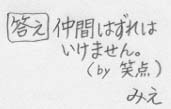 答え 仲間はずれは
いけません。
(by 笑点)
みえ